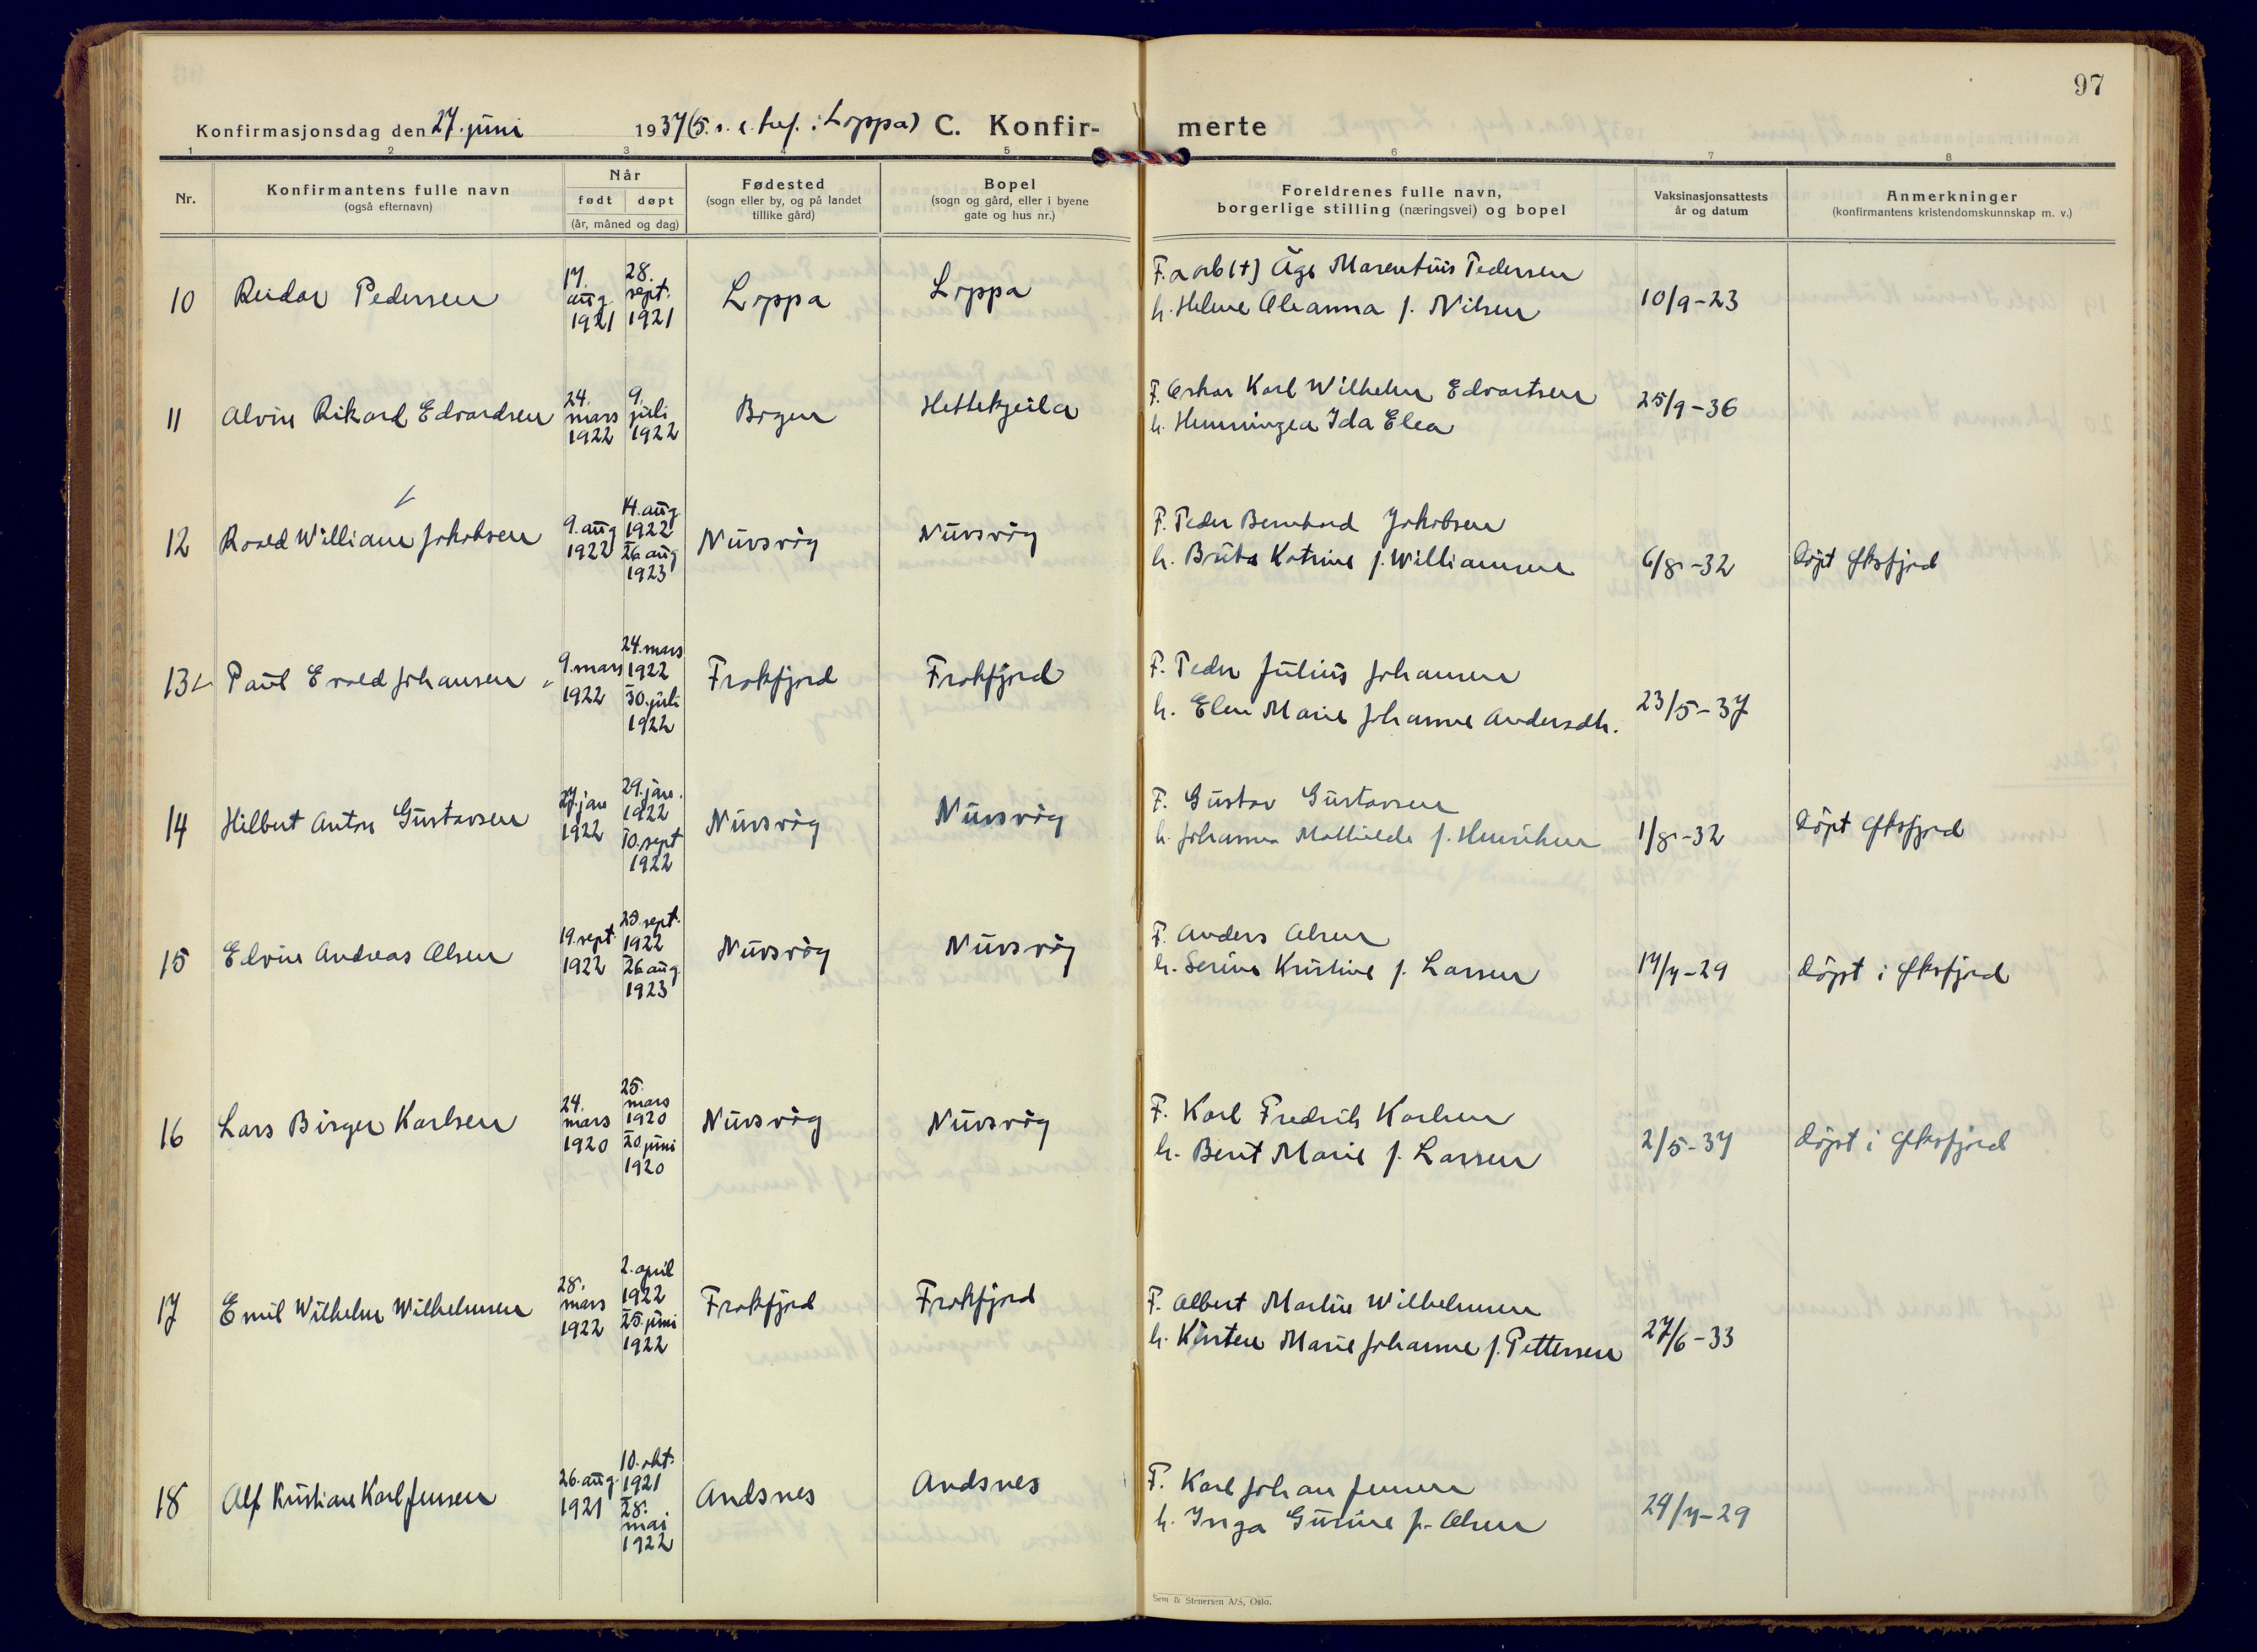 97
Konfirmasjonsdag den 27. juni 1937 (5. s. e. tref. i Loppa) C. Konfir- merte
1 2 3 4 5 6 7 8
Nr.
Konfirmantens fulle navn
(også efternavn)
Når
født døpt
(år, måned og dag)
Fødested
(sogn eller by, og på landet
tillike gård)
Bopel
(sogn og gård, eller i byene
gate og hus nr.)
Foreldrenes fulle navn,
borgerlige stilling (næringsvei) og bopel
Vaksinasjonsattests
år og datum
Anmerkninger
(konfirmantens kristendomskunnskap m. v.)
10 Reidar Pedersen
17. aug. 1921
28. sept. 1921
Loppa
Loppa
F. arb (+) Åge Marentius Pedersen
h. Helene Aleanna f. Nilsen
10/9-23
11 Alvin Rikard Edvardsen
24. mars 1922
9. juli 1922
Bogen
Hettekjeila
F. Oskar Karl Wilhelm Edvartsen
h. Henningea Ida Elea
25/9-36
12 Roald William Jakobsen
9. aug 1922
14. aug 1922
26 aug 1923
Nuvsvåg
Nuvsvåg
F. Peder Bernhard Jakobsen
h. Brita Katrine f. Williamsen
6/8-32
døpt Øksfjord
13 Paul Evald Johansen
9. mars 1922
24. mars 1922
30. juli 1922
Frakfjord
Frakfjord
F. Peder Julius Johansen
h. Elen Marie Johanne Andersdtr.
23/5-37
14 Hilbert Anton Gustavsen
27. jan 1922
29. jan. 1922
10. sept 1922
Nuvsvåg
Nuvsvåg
F. Gustav Gustavsen
h. Johanna Mathilde f. Henriksen
1/8-32
døpt Øksfjord
15 Edvin Andreas Olsen
19. sept. 1922
23. sept. 1922
26 aug. 1923
Nuvsvåg
Nuvsvåg
F. Anders Olsen
h. Serine Kristine f. Larsen
17/7-29
døpt i Øksfjord
16 Lars Birger Karlsen
24. mars 1920
25. mars 1920
20. juni 1920
Nuvsvåg
Nuvsvåg
F. Karl Fredrik Karlsen
h. Berit Marie f. Larsen
2/5-37
døpt i Øksfjord
17 Emil Wilhelm Wilhelmsen
28. mars 1922
2. april 1922
25. juni 1922
Frakfjord
Frakfjord
F. Albert Martin Wilhelmsen
h. Kirsten Marie Johanne f. Pettersen
27/6-33
18 Alf Kristian Karl Jensen
26. aug. 1921
10. okt. 1921
28. mai 1922
Andsnes
Andsnes
F. Karl Johan Jensen
h. Inga Gurine f. Olsen
24/7-29
Sem & Stenersen A/S, Oslo.